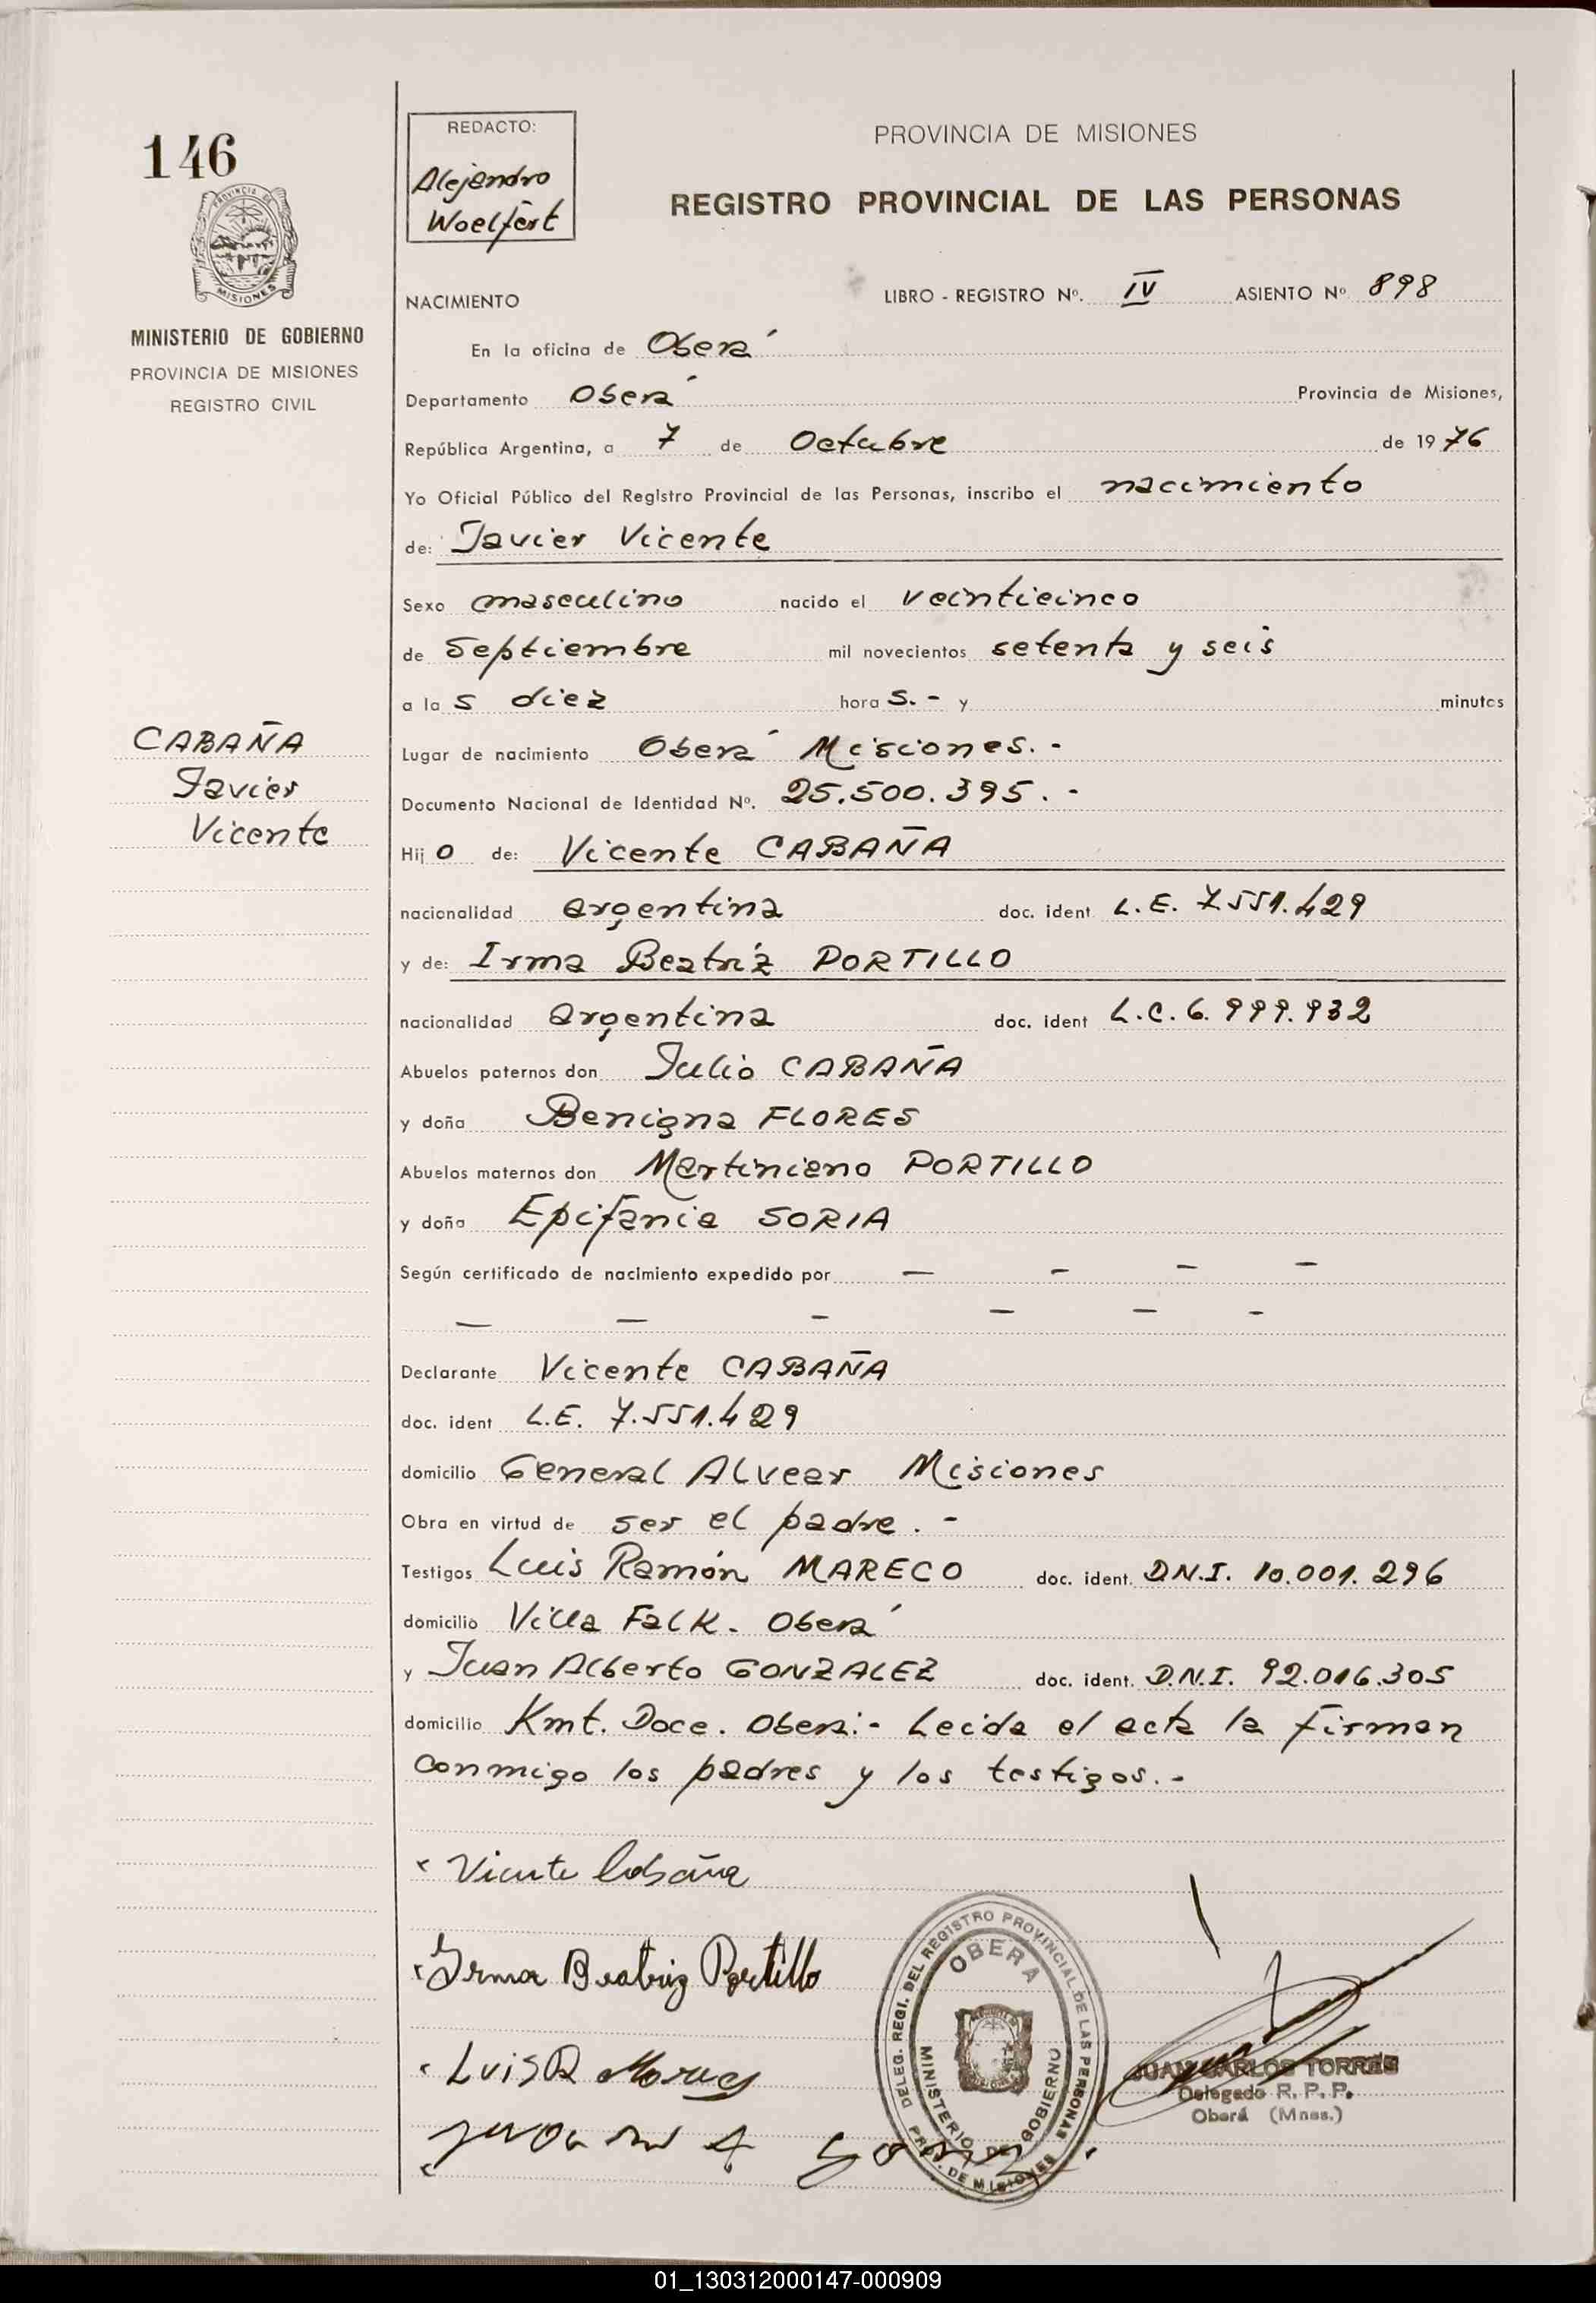 146
PROVINCIA DE
MISIONES
MINISTERIO DE GOBIERNO
PROVINCIA DE MISIONES
REGISTRO CIVIL
CABAÑA
Javier
Vicente
REDACTO:
Alejandro
Woelfert
PROVINCIA DE MISIONES
REGISTRO PROVINCIAL DE LAS PERSONAS
NACIMIENTO LIBRO - REGISTRO Nº. IV ASIENTO Nº 898
En la oficina de Oberá
Departamento Oberá Provincia de Misiones,
República Argentina, a 7 de Octubre de 1976
Yo Oficial Público del Registro Provincial de las Personas, inscribo el nacimiento
de: Javier Vicente
Sexo masculino nacido el veinticinco
de Septiembre mil novecientos setenta y seis
a las diez horas.- y minutos
Lugar de nacimiento Oberá Misiones.-
Documento Nacional de Identidad Nº. 25.500.395.-
Hijo de: Vicente CABAÑA
nacionalidad argentina doc. ident. L.E. 7.551.429
y de: Irma Beatriz PORTILLO
nacionalidad argentina doc. ident L.C. 6.999.932
Abuelos paternos don Julio CABAÑA
y doña Benigna FLORES
Abuelos maternos don Martiniano PORTILLO
y doña Epifania SORIA
Según certificado de nacimiento expedido por — - - -
— — - — — -
Declarante Vicente CABAÑA
doc. ident L.E. 7.551.429
domicilio General Alvear Misiones
Obra en virtud de ser el padre.-
Testigos Luis Ramón MARECO doc. ident. D.N.I. 10.001.296
domicilio Villa Falk. Oberá
y Juan Alberto GONZALEZ doc. ident. D.N.I. 92.016.305
domicilio Kmt. Doce. Oberá.- Leída el acta la firman
conmigo los padres y los testigos.-
Vicente Cabaña
Irma Beatriz Portillo
Luis R
DELEG. REGI. DEL REGISTRO PROVINCIAL DE LAS PERSONAS
OBERÁ
MINISTERIO DE GOBIERNO
PROV. DE MISIONES
JUAN CARLOS TORRES
Delegado R. P. P.
Oberá (Mnes.)
01_130312000147-000909